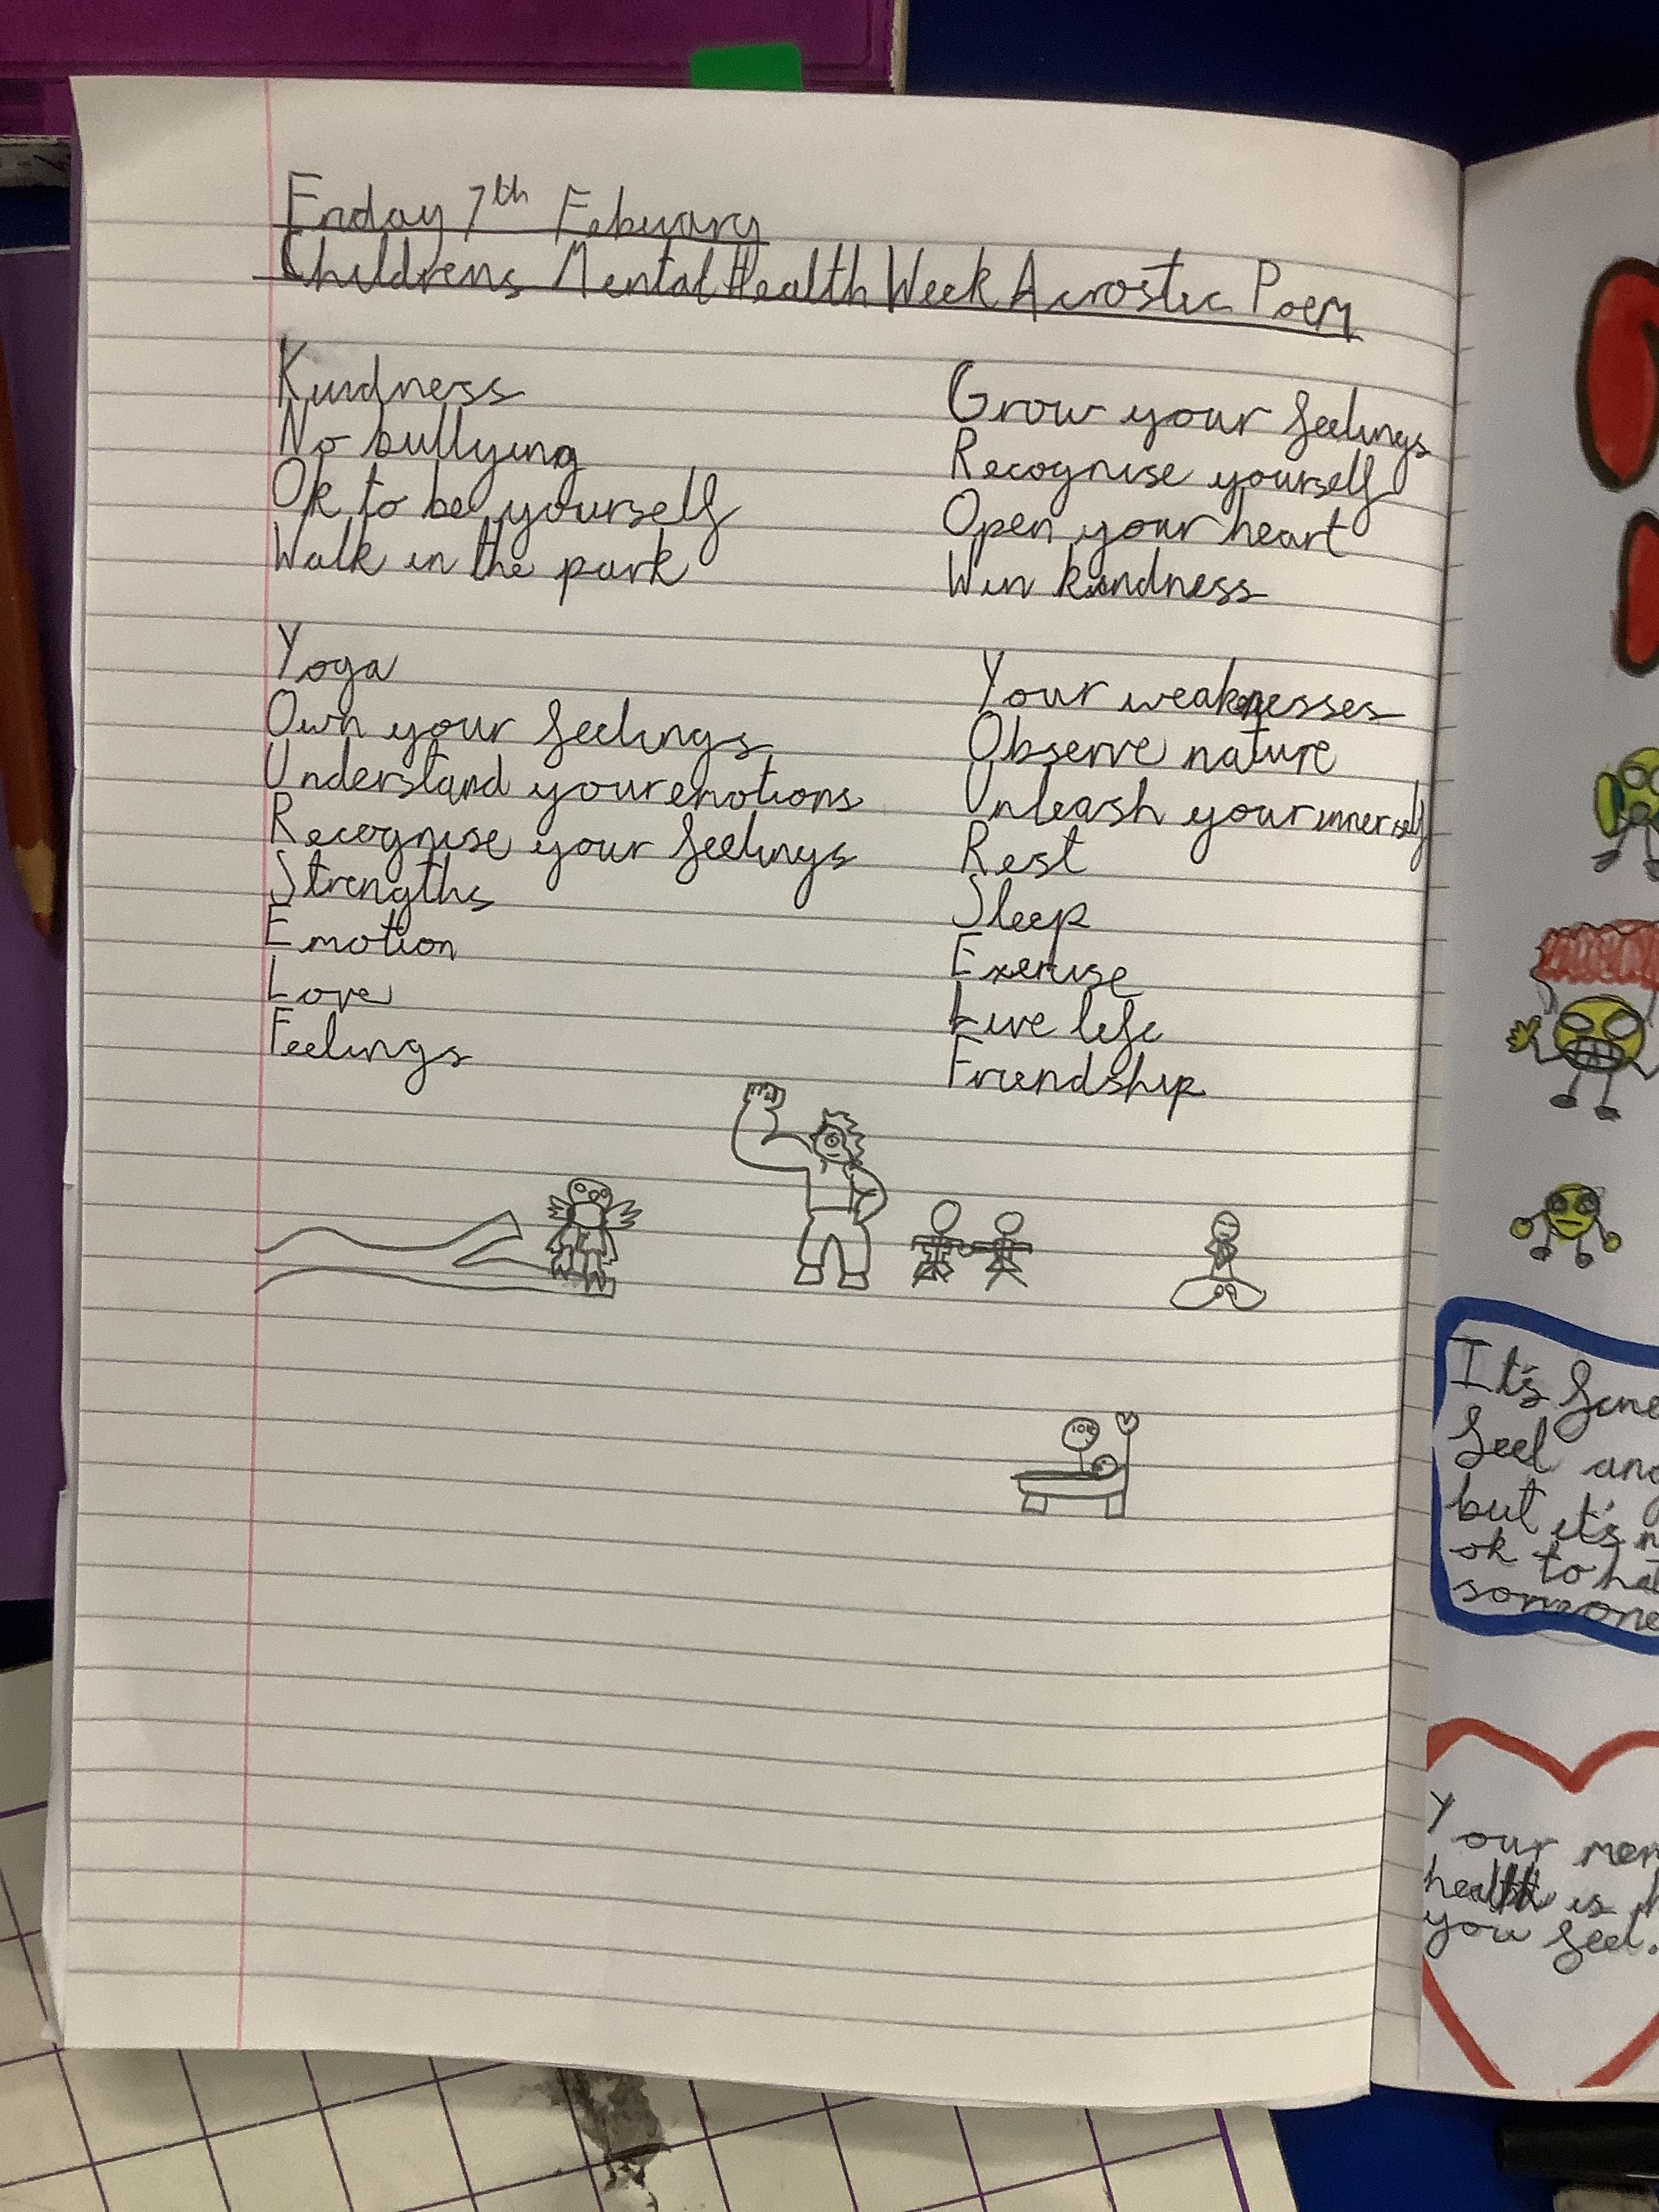 Friday 7th Febuary
Childrens Mental Health Week Acrostic Poem
Kindness
No bullying
Ok to be yourself
Walk in the park
Yoga
Own your feelings
Understand your emotions
Recognise your feelings
Strengths
Emotion
Love
Feelings
Grow your feelings
Recognise yourself
Open your heart
Win kindness
Your weaknesses
Observe nature
Unleash your inner self
Rest
Sleep
Exercise
Live life
Friendship
It's
feel
but it's
ok to
someone
Your
health is
you feel.